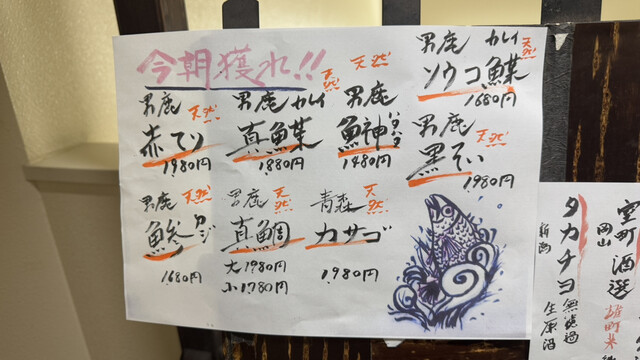 今朝獲れ!!
男鹿 カレイ 天然
ソウコ鰈
1680円
男鹿 天然
赤てり
1980円
男鹿 カレイ 天然
真鰈
1880円
男鹿
鰰 ハタハタ
1480円
男鹿 天然
黒そい
1980円
男鹿 天然
カジ
1680円
男鹿 天然
真鯛
大1980円
小1780円
青森 天然
カサゴ
1980円
室町酒選
岡山
雄町米
タカチヨ
新潟
無濾過
生原酒